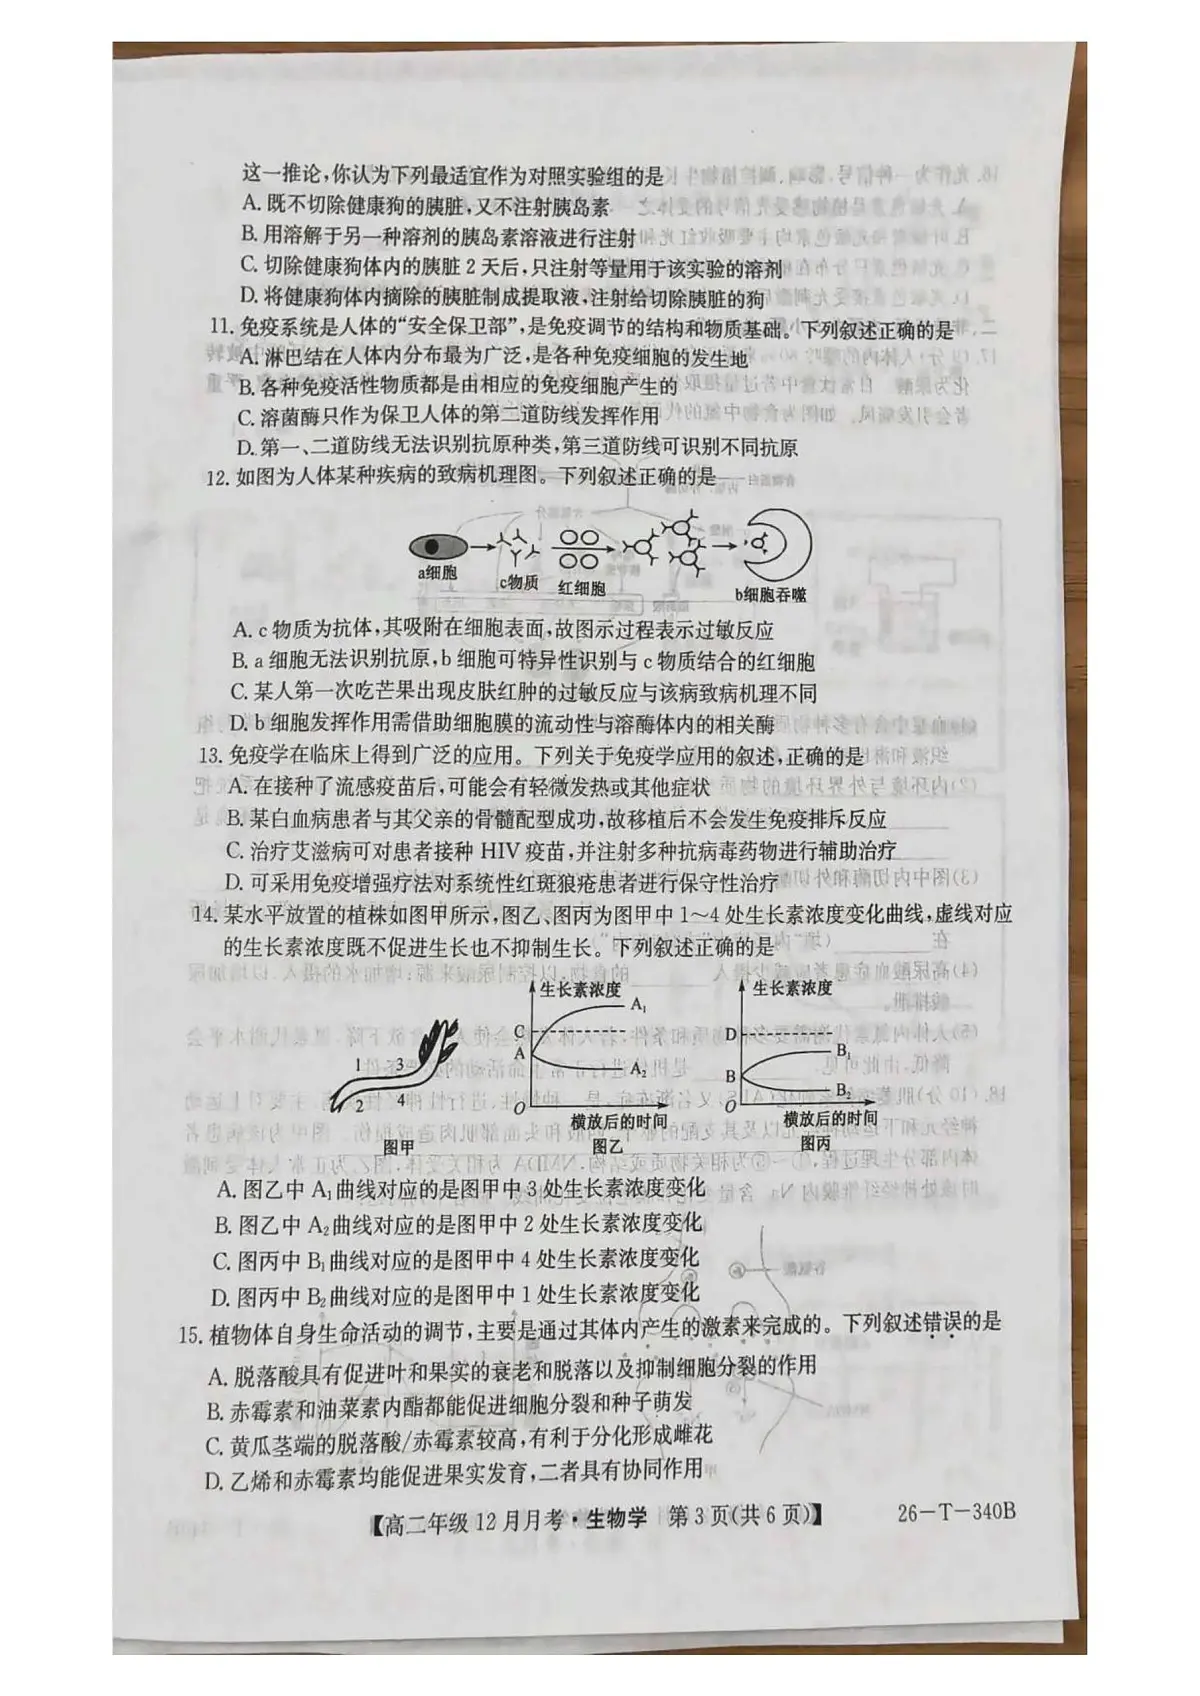 这一推论,你认为下列最适宜作为对照实验组的是
A. 既不切除健康狗的胰脏,又不注射胰岛素
B. 用溶解于另一种溶剂的胰岛素溶液进行注射
C. 切除健康狗体内的胰脏 2 天后,只注射等量用于该实验的溶剂
D. 将健康狗体内摘除的胰脏制成提取液,注射给切除胰脏的狗
11. 免疫系统是人体的“安全保卫部”,是免疫调节的结构和物质基础。下列叙述正确的是
A. 淋巴结在人体内分布最为广泛,是各种免疫细胞的发生地
B. 各种免疫活性物质都是由相应的免疫细胞产生的
C. 溶菌酶只作为保卫人体的第二道防线发挥作用
D. 第一、二道防线无法识别抗原种类,第三道防线可识别不同抗原
12. 如图为人体某种疾病的致病机理图。下列叙述正确的是
a细胞 c物质 红细胞 b细胞吞噬
A. c 物质为抗体,其吸附在细胞表面,故图示过程表示过敏反应
B. a 细胞无法识别抗原,b 细胞可特异性识别与 c 物质结合的红细胞
C. 某人第一次吃芒果出现皮肤红肿的过敏反应与该病致病机理不同
D. b 细胞发挥作用需借助细胞膜的流动性与溶酶体内的相关酶
13. 免疫学在临床上得到广泛的应用。下列关于免疫学应用的叙述,正确的是
A. 在接种了流感疫苗后,可能会有轻微发热或其他症状
B. 某白血病患者与其父亲的骨髓配型成功,故移植后不会发生免疫排斥反应
C. 治疗艾滋病可对患者接种 HIV 疫苗,并注射多种抗病毒药物进行辅助治疗
D. 可采用免疫增强疗法对系统性红斑狼疮患者进行保守性治疗
14. 某水平放置的植株如图甲所示,图乙、图丙为图甲中 1～4 处生长素浓度变化曲线,虚线对应
的生长素浓度既不促进生长也不抑制生长。下列叙述正确的是
1 3 2 4
图甲
生长素浓度 A₁ C A A₂ O 横放后的时间
图乙
生长素浓度 D B₁ B B₂ O 横放后的时间
图丙
A. 图乙中 A₁曲线对应的是图甲中 3 处生长素浓度变化
B. 图乙中 A₂曲线对应的是图甲中 2 处生长素浓度变化
C. 图丙中 B₁曲线对应的是图甲中 4 处生长素浓度变化
D. 图丙中 B₂曲线对应的是图甲中 1 处生长素浓度变化
15. 植物体自身生命活动的调节,主要是通过其体内产生的激素来完成的。下列叙述错误的是
A. 脱落酸具有促进叶和果实的衰老和脱落以及抑制细胞分裂的作用
B. 赤霉素和油菜素内酯都能促进细胞分裂和种子萌发
C. 黄瓜茎端的脱落酸/赤霉素较高,有利于分化形成雌花
D. 乙烯和赤霉素均能促进果实发育,二者具有协同作用
【高二年级 12 月月考·生物学 第 3 页(共 6 页)】 26-T-340B